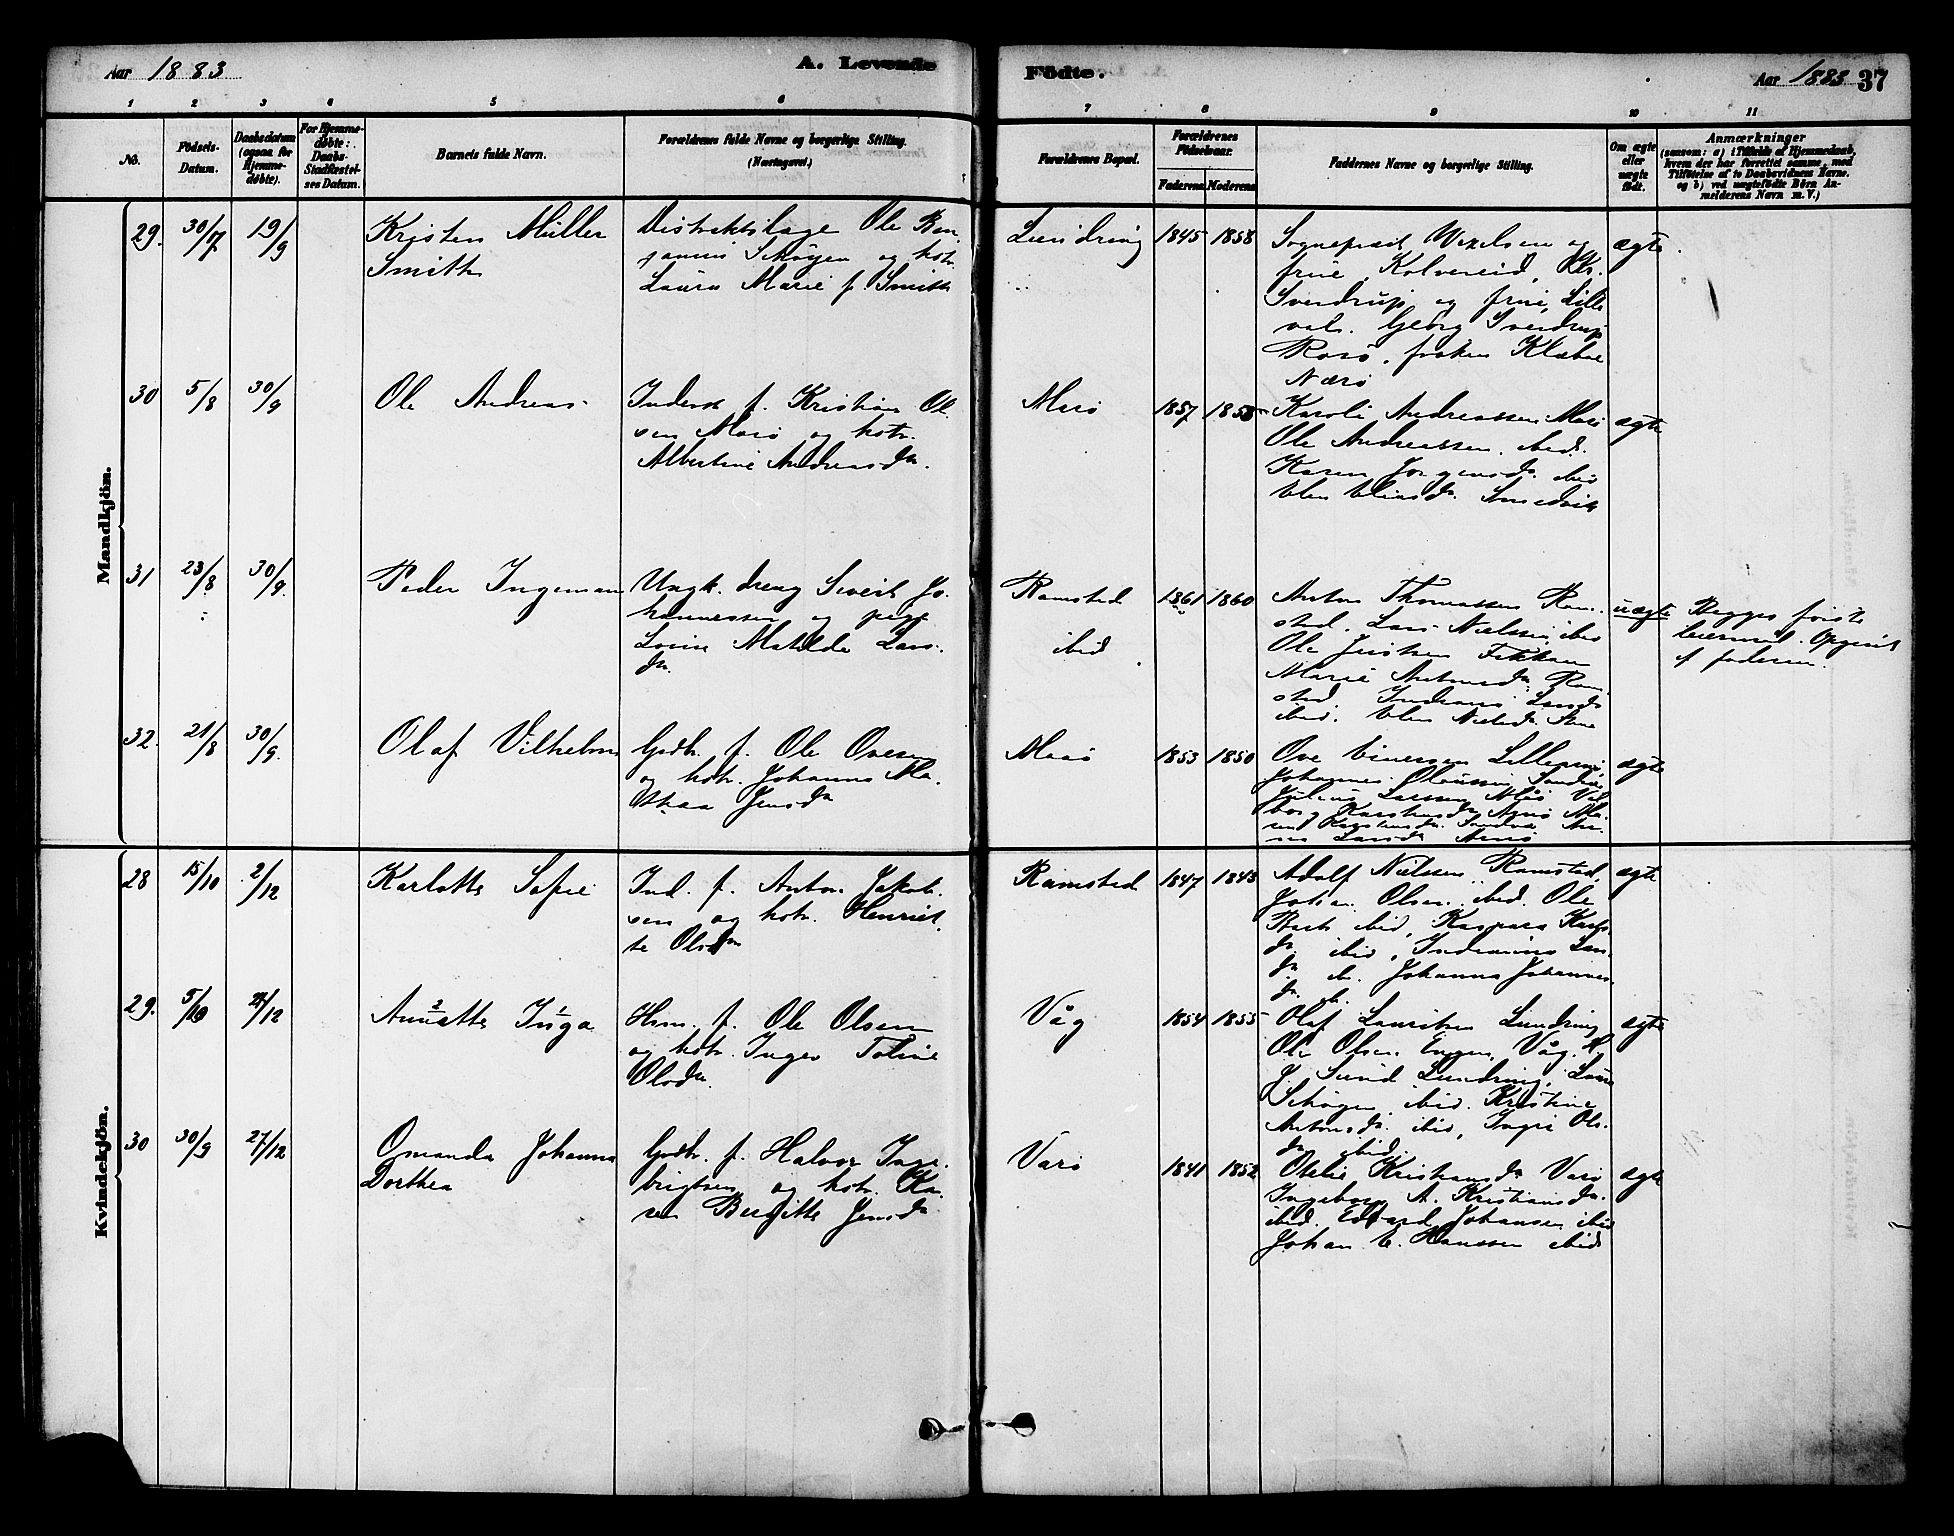 Aar 1883
A. Levende
Födte.
Aar 1883 37
1 2 3 4 5 6 7 8 9 10 11
No.
Födsels-
Datum.
Daabsdatum
(ogsaa for
Hjemme-
døbte).
For Hjemme-
døbte:
Daabs-
Stadfæstel-
ses Datum.
Barnets fulde Navn.
Forældrenes fulde Navne og borgerlige Stilling.
(Næringsvei.)
Forældrenes Bopæl.
Forældrenes
Födselsaar.
Faderens Moderens
Faddernes Navne og borgerlige Stilling.
Om ægte
eller
uægte
født.
Anmærkninger
(saasom: a) i Tilfælde af Hjemmedaab,
hvem der har forrettet samme, med
Tilföielse af to Daabsvidners Navne,
og b) ved uægtefödte Börn An-
melderens Navn m. V.)
Mandkjön.
29. 30/7 19/9
Kristen Müller
Smith
Distriktslæge Ole Ben-
jamin Schøyen og hstr.
Laura Marie f. Smith
Lundring 1845 1858
Sognepræst Wexelsen og
frue, Kolvereid, Kb.
Sverdrup og frue, Lille
val. Georg Sverdrup
Rosø, frøken Klæboe
Nærø
ægte
30 5/8 30/9
Ole Andreas
Inderst f. Kristian Ol-
sen Marø og hstr.
Albertine Andreasdtr.
Marø 1857 1858
Karoli Andreassen Marø
Ole Andreassen ibid.
Karen Jørgensdr. ibid
Elen Eliasdr. Smedvik
ægte
31 23/8 30/9
Peder Ingeman
Ungk. dreng Sivert Jo-
hannessen og pige
Lovise Matilda Lars-
dr.
Ramsted
ibid
1861 1860
Anton Thomassen Ram-
sted. Lars Nielssen ibid
Ole Jensen
Marie Antonsdr. Ram-
sted. Indiana Larsdr
ibid. Elen Nielsdr.
uægte
Begges første
leiermaal. Opgivet
af faderen.
32. 21/8 30/9
Olaf Vilhelm
Gdbr. f. Ole Ovesen
og hstr. Johanna Ma-
thea Jensdr
Marø 1853 1850
Ove Einersen
Johannes Olaussen
Julius Larssen
ægte
Kvindekjön.
28 15/10 2/12
Karlotte Sofie
Ind. f. Anton Jakob-
sen og hstr. Henriet-
te Olsdr
Ramsted 1847 1843
Adolf Nielsen Ramstad,
Johan Olsen ibid. Ole
Bach ibid, Kaspara Karls-
dr. ibid, Indianna Lars-
dr. ib. Johanna Johannes-
dr. ib.
ægte
29. 5/10 27/12
Annette Inga
Hsm. f. Ole Olsen
og hstr. Inger Toline
Olsdr.
Våg 1854 1855
Olaf Lauritsen Lundring
Ole Olsen Engen, Våg.
J. Sund Lundring, Laura
Schøyen ibid. Kristine
Antonsdr. ibid, Ingri Ols-
dr. ibid.
ægte
30 30/9 27/12
Omanda Johanna
Dorthea
Gdbr. f. Halvor Inge-
brigtsen og hstr. Ka-
ren Bergitte Jensdr
Varø 1841 1852
Otelie Kristiansdr Varø
Ingeborg A. Kristiansdr.
ibid. Edvard Johansen ibid
Johan E. Hanssen ibid
ægte